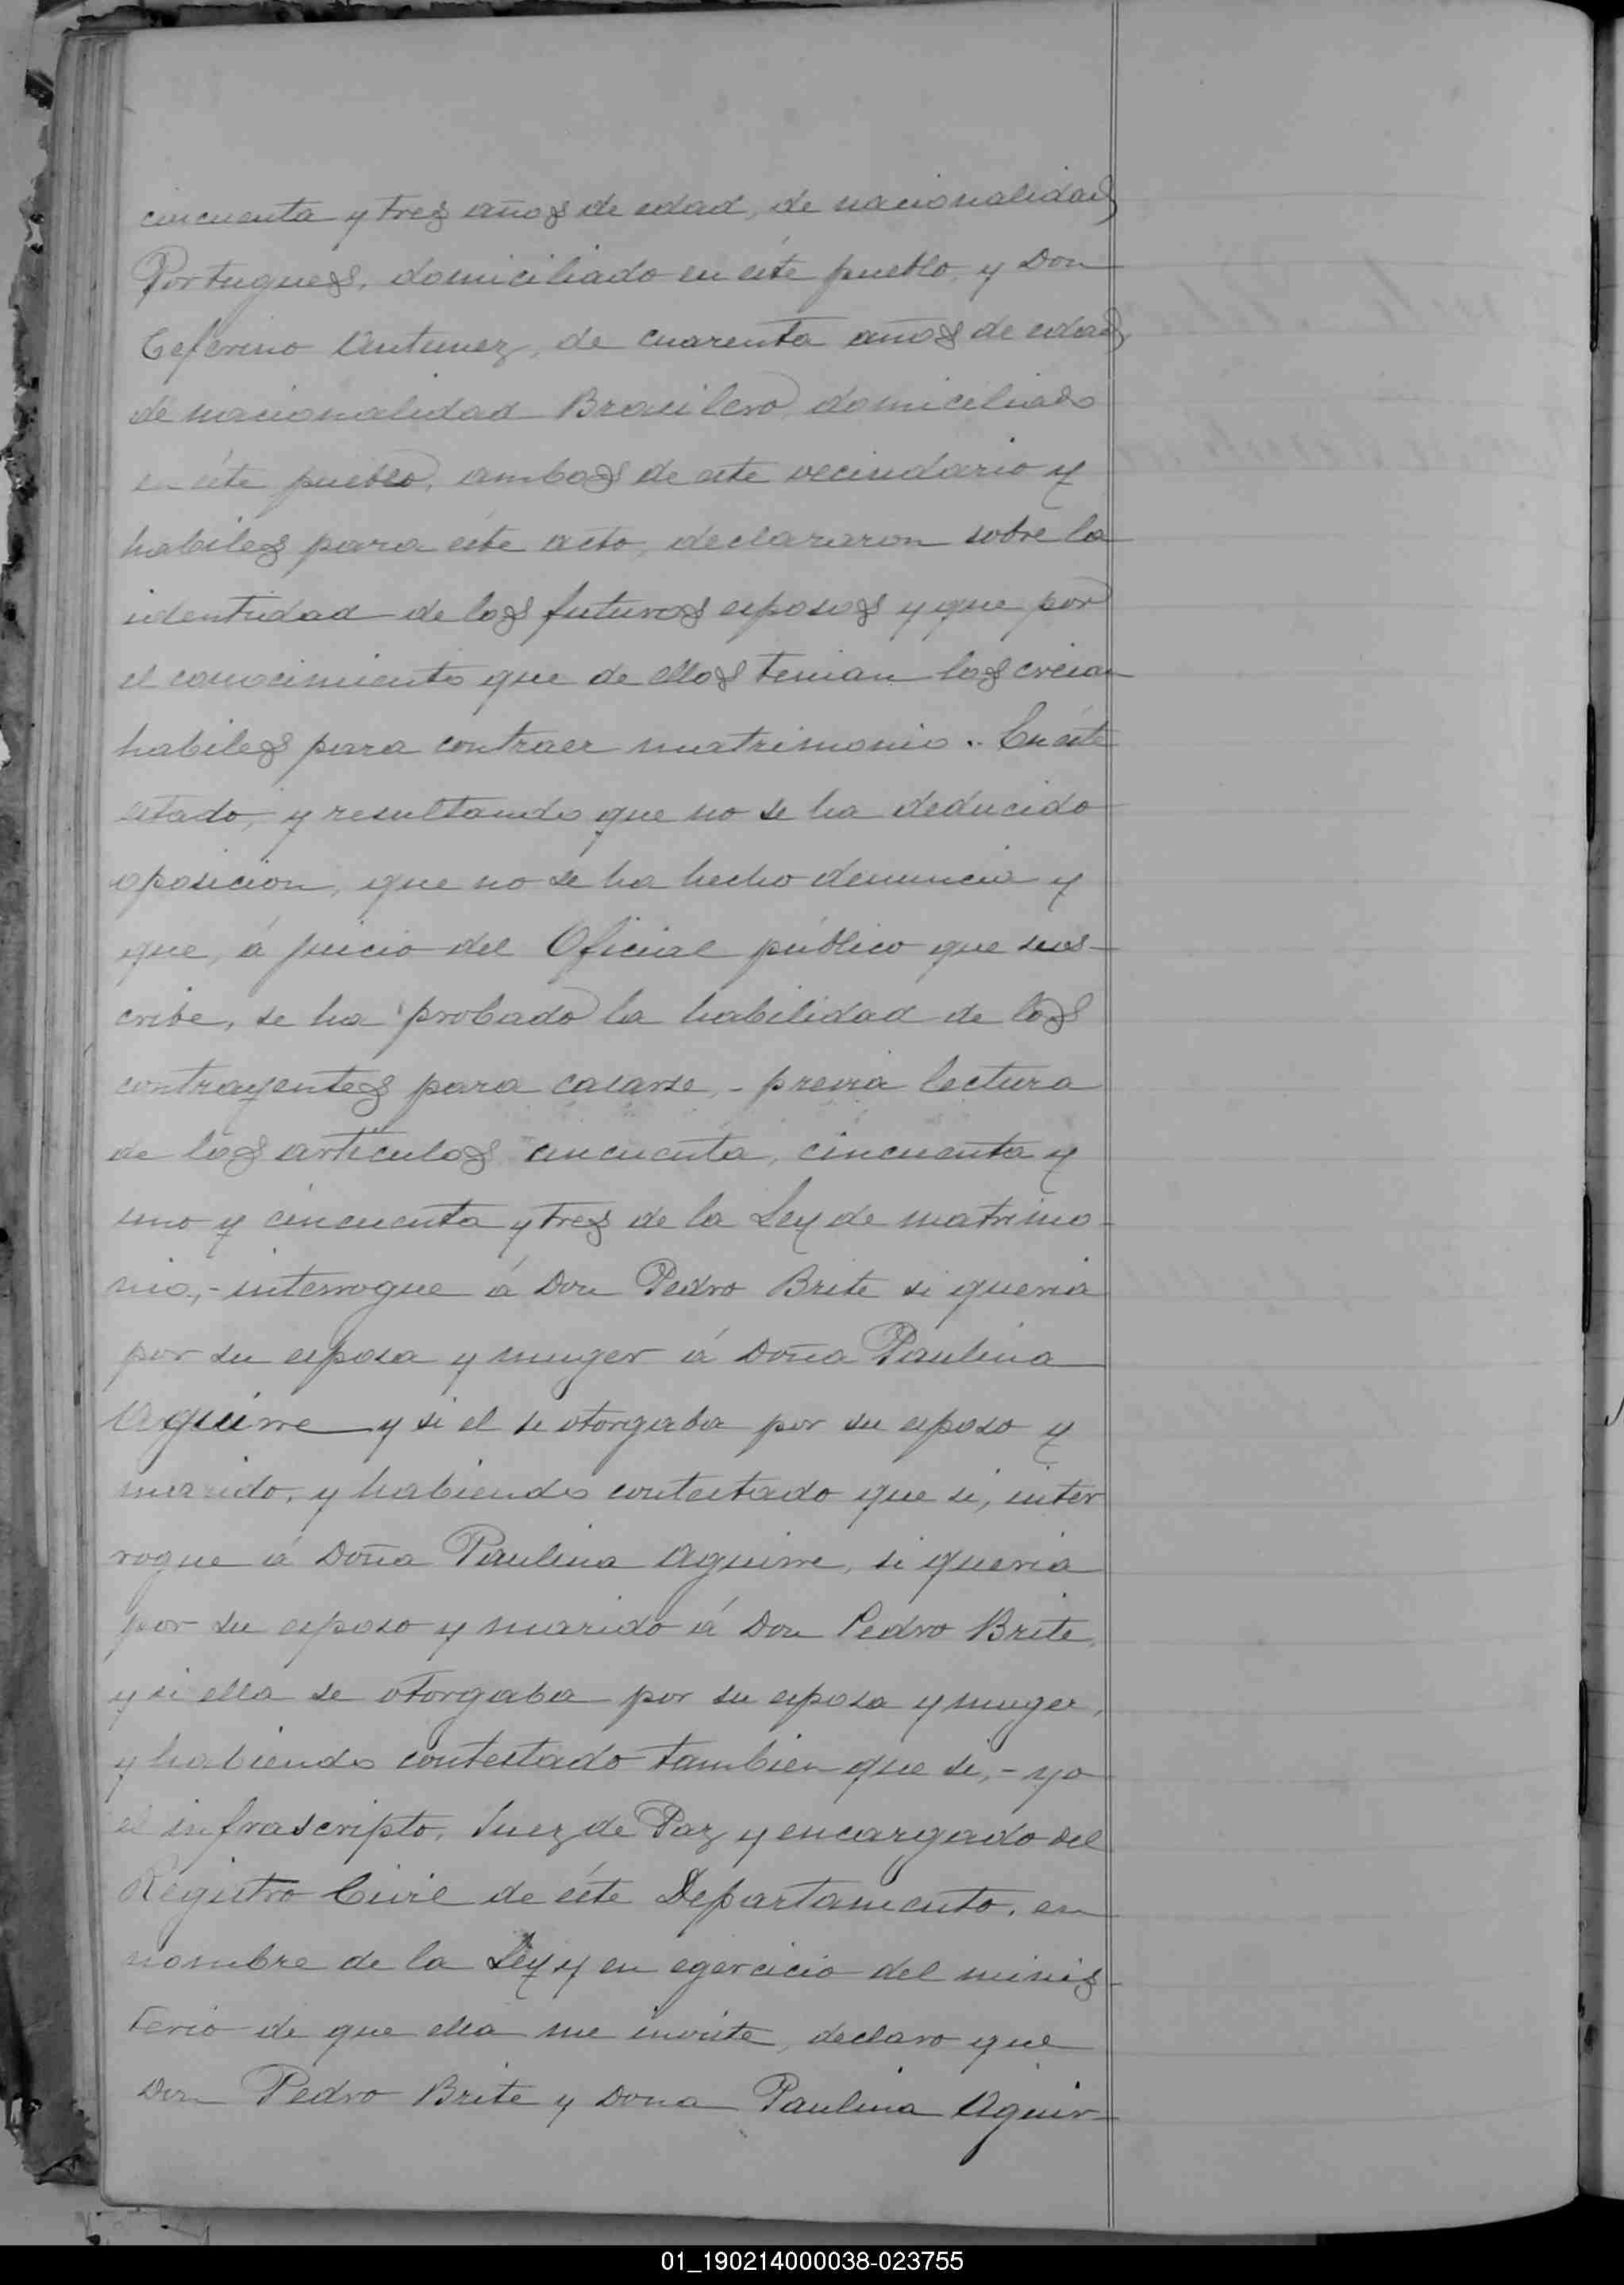 cincuenta y tres años de edad, de nacionalidad
Portugues, domiciliado en éste pueblo, y Don
Ceferino Antunez, de cuarenta años de edad,
de nacionalidad Brasilero, domiciliado
en éste pueblo, ambos de este vecindario y
habiles para éste acto, declararon sobre la
identidad de los futuros esposos y que por
el conocimiento que de ellos tenian los creian
habiles para contraer matrimonio. En éste
estado, y resultando que no se ha deducido
oposicion, que no se ha hecho denuncia y
que, á juicio del Oficial público que sus-
cribe, se ha probado la habilidad de los
contrayentes para casarse, - previa lectura
de los artículos cincuenta, cincuenta y
uno y cincuenta y tres de la Ley de matrimo-
nio, - interrogue á Don Pedro Brite si queria
por su esposa y muger á Doña Paulina
Aguirre y si el se otorgaba por su esposo y
marido, y habiendo contestado que si, inter
rogue á Doña Paulina Aguirre, si queria
por su esposo y marido á Don Pedro Brite,
y si ella se otorgaba por su esposa y muger,
y habiendo contestado tambien que si, - yo
el infrascripto, Juez de Paz y encargado del
Registro Civil de éste Departamento, en
nombre de la Ley y en egercicio del minis-
terio de que ella me inviste, declaro que
Don Pedro Brite y Dona Paulina Aguir-
01_190214000038-023755